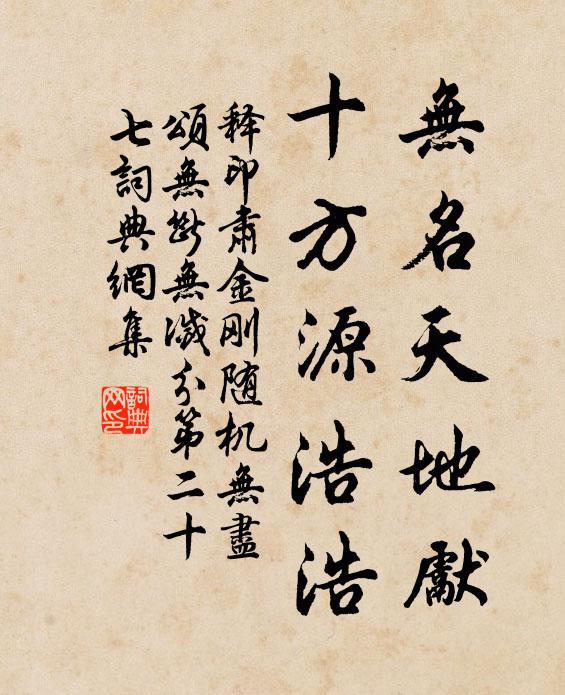 無名天地獻
十方源浩浩
释印肃金刚随机無盡
頌無断無滅分第二十
七詞典網集
詞典
网印